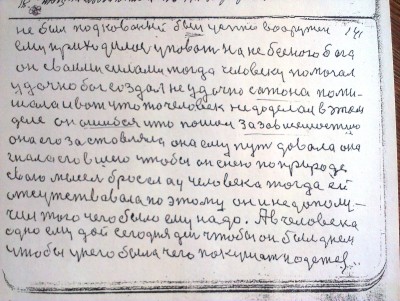 не был подкованый был четко вооружен 141
ему приходилось уповат на небесного бога
он своими силами тогда человеку помогал
удачно бог создал не удачно сатона поме-
шала и вот что то человек недоделал в этом
деле он ошибся что пошол за завшемостию
она его заставляла она ему пут давала она
гнала его вшию чтобы он снею по природе
свою мысел бросела у человека тогда ей
отсутствавала поэтому он и недополу-
чил того чего было ему надо. А в человека
одно ему дай сегодня ди чтобы он был днем
чтобы у него было чего покушат и одетса